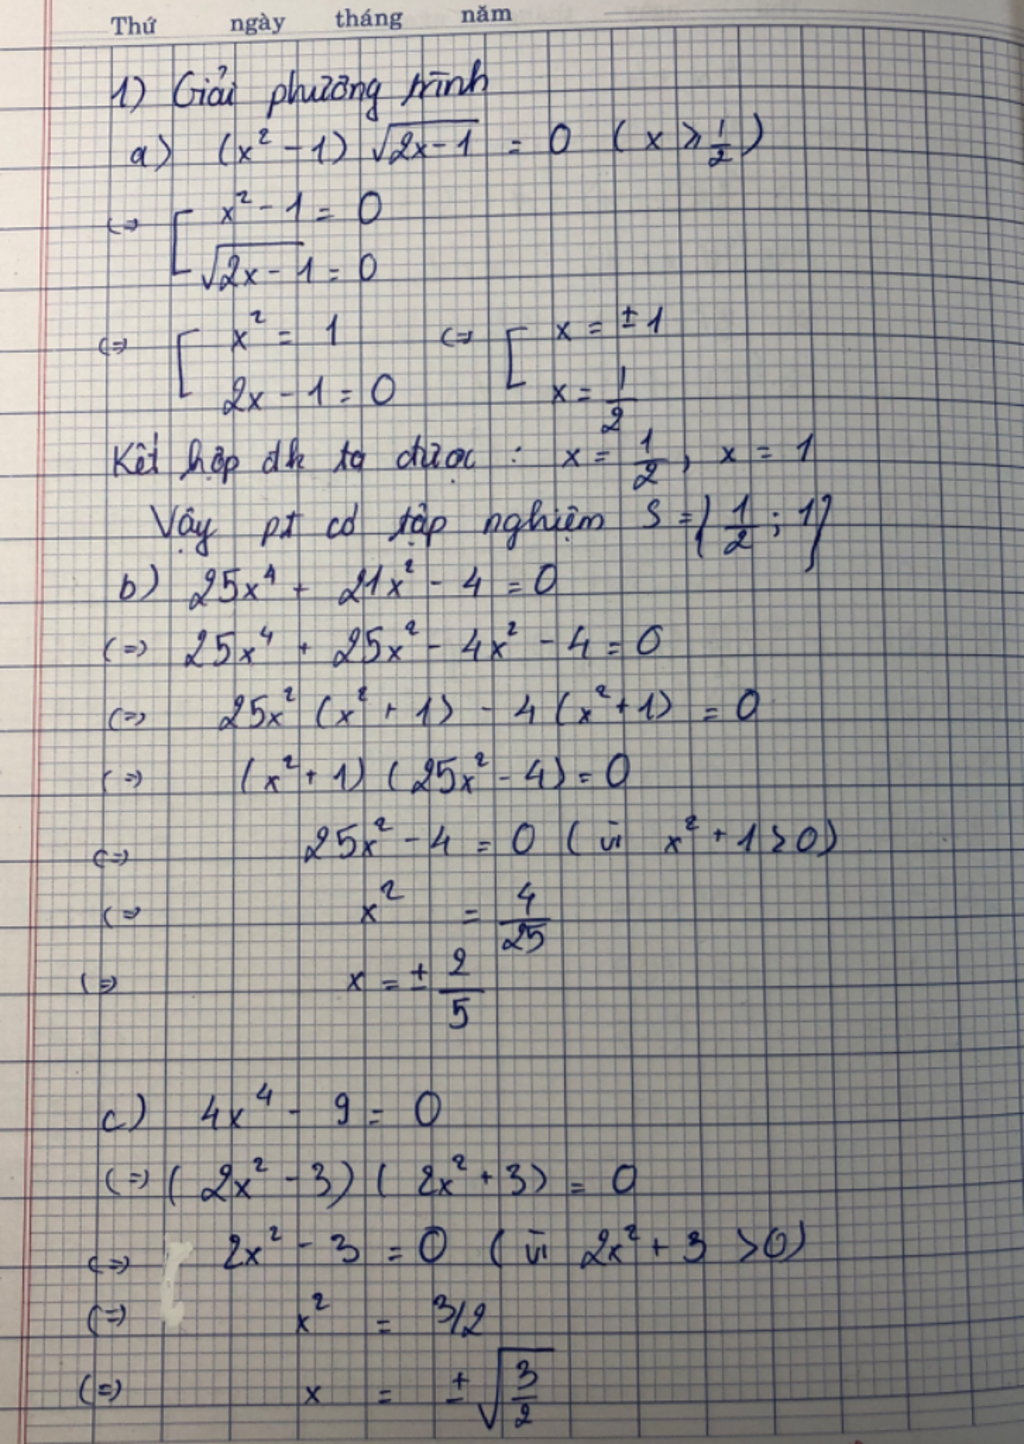 Thứ ngày tháng năm
1) Giải phương trình
a) (x² - 1) √(2x-1) = 0 (x ⩾ 1/2)
<=> [ x² - 1 = 0
√(2x-1) = 0
<=> [ x² = 1 <=> [ x = ±1
2x - 1 = 0 x = 1/2
Kết hợp đk ta được : x = 1/2, x = 1
Vậy pt có tập nghiệm S = {1/2 ; 1}
b) 25x⁴ + 21x² - 4 = 0
<=> 25x⁴ + 25x² - 4x² - 4 = 0
<=> 25x² (x² + 1) - 4 (x² + 1) = 0
<=> (x² + 1) (25x² - 4) = 0
<=> 25x² - 4 = 0 (vì x² + 1 > 0)
<=> x² = 4/25
<=> x = ± 2/5
c) 4x⁴ - 9 = 0
<=> (2x² - 3) (2x² + 3) = 0
<=> 2x² - 3 = 0 (vì 2x² + 3 > 0)
<=> x² = 3/2
<=> x = ± √(3/2)